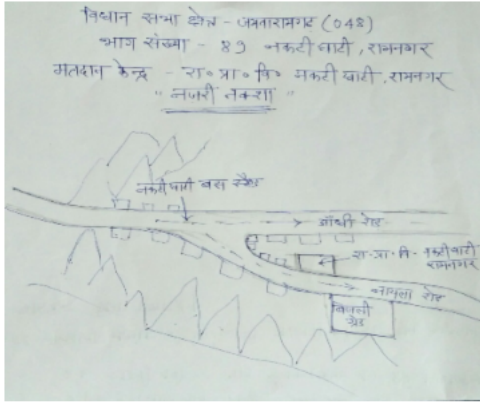 विधान सभा क्षेत्र - जमवारामगढ (048)
भाग संख्या - 89 नकटी घाटी, रामनगर
मतदान केन्द्र - रा॰ प्रा॰ वि॰ नकटी घाटी, रामनगर
" नजरी नक्शा "
नकटी घाटी बस स्टैण्ड
आँधी रोड
रा॰ प्रा॰ वि॰ नकटी घाटी
रामनगर
नायला रोड
बिजली
ग्रिड